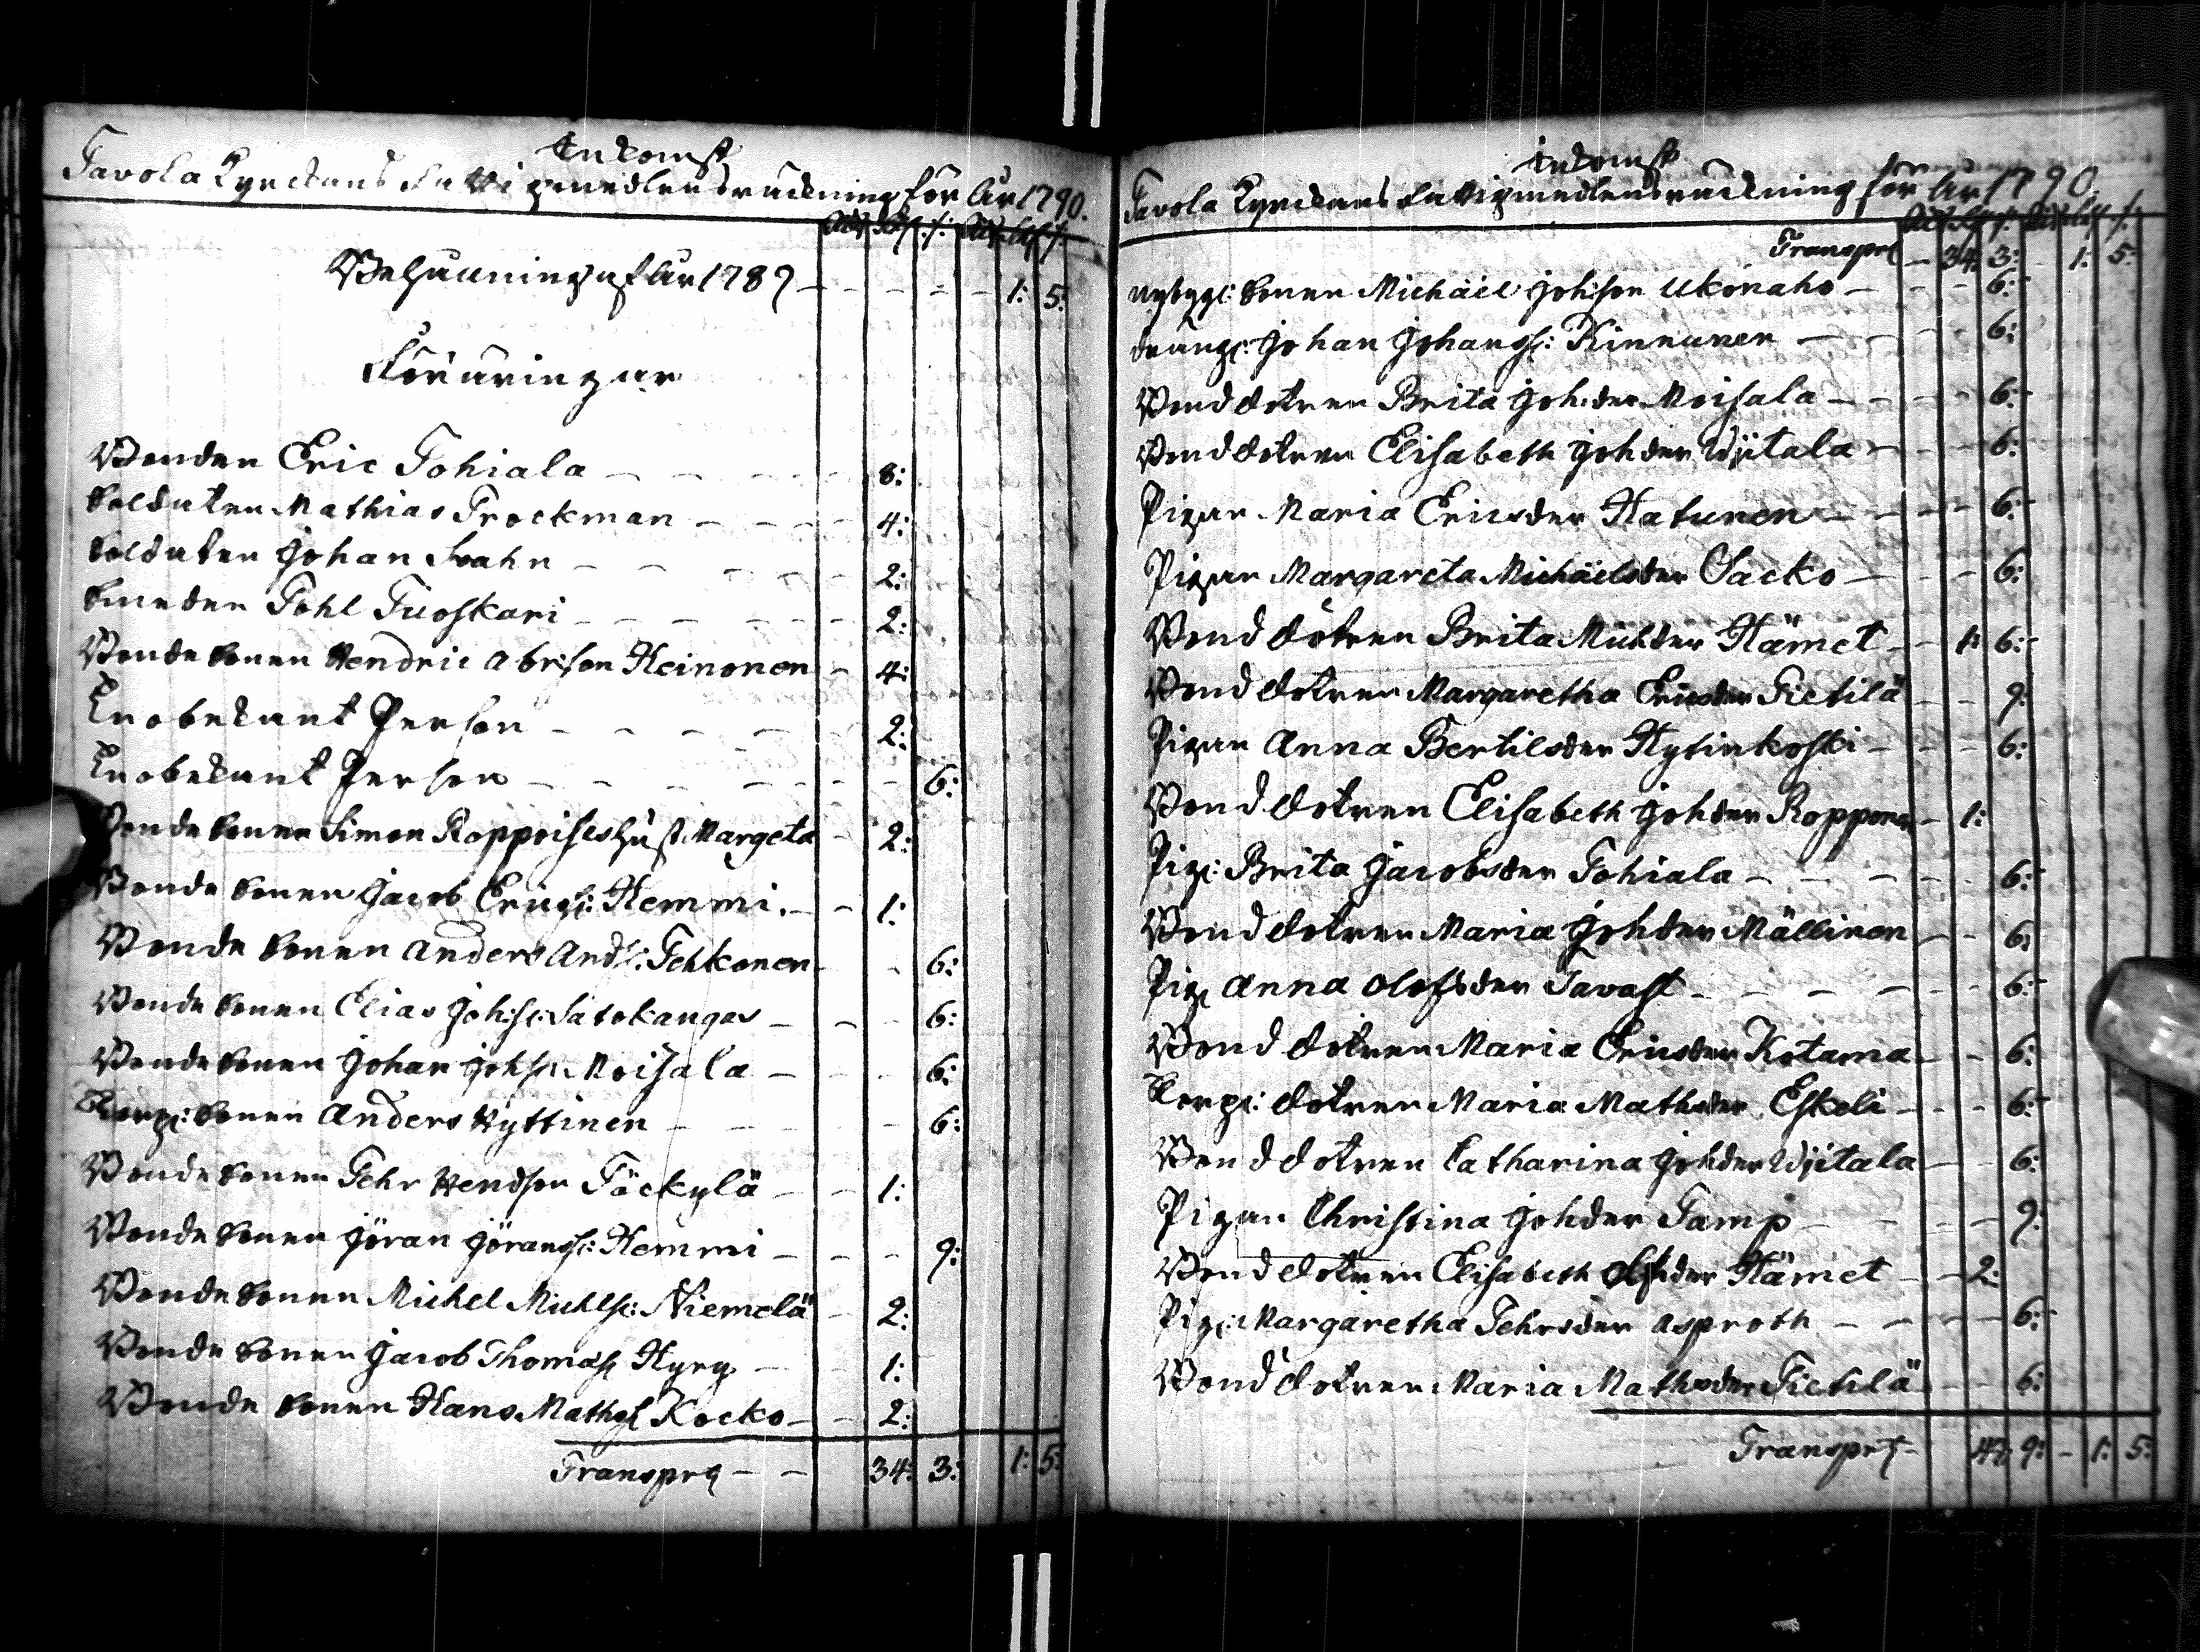 Inkomst
Tavola Kyrckans Fattigmedlens räckning för år 1790.
Behållning af år 1789 - - - - 1: 5:
Föräringar
Bonden Eric Tohiala - - - 8:
Soldaten Mathias Trockman - - - 4:
Soldaten Johan Svahn - - - 2:
Smeden Pohl Tuoskari - - - 2:
Bonde Sonen Hendric Abr:son Heinonen - 4:
En obekant Person - - - 2:
En obekant Person - - - 6:
Bonde Sonen Simon Roppoises hust. Margeta - 2:
Bonde Sonen Jacob Erics: Hemmi. - - 1:
Bonde Sonen Anders And:s: Tehkonen - 6:
Bonde Sonen Elias Joh:s: Satokangas - - - 6:
Bonde Sonen Johan Joh:s: Moisala - - - 6:
Torp: Sonen Anders Hyttinen - - - 6:
Bonde Sonen Pehr Hendson Täckylä - - 1:
Bonde Sonen Jöran Jörans: Hemmi - - - 9:
Bonde Sonen Michel Michls: Niemelä - 2:
Bonde Sonen Jacob Thomas: Hyry - 1:
Bonde Sonen Hans Maths: Kocko - - 2:
Transprt - - 34: 3: 1: 5:
Inkomst
Tavola Kyrckans Fattigmedlens räckning för år 1790.
Transprt - 34: 3: - 1: 5:
nybygg: Sonen Michäel Joh:son Ukonaho - - - 6:
dräng: Johan Johans: Kinnunen - - - 6:
Bond dotren Brita Joh:der Moisala - - - 6:
Bond dotren Elisabeth Johder Wjitala - - - 6:
Pigan Maria Ericsder Hatunen - - - 6:
Pigan Margareta Michäelsder Sacko - - - 6:
Bond dotren Brita Michder Hämet - - 1: 6:
Bond dotren Margaretha Ericsder Tietilä - - 9:
Pigan Anna Bertilsder Hytinkoski - - - 6:
Bond dotren Elisabeth Johder Roppone - 1:
Pig: Brita Jacobsder Tohiala - - - 6:
Bond dotren Maria Johder Mällinen - - 6:
Pig: Anna Olofsder Tavast - - - 6:
Bond dotren Maria Ericsder Kotama - - 6:
Torp: dotren Maria Mathsder Eskeli - - - 6:
Bond dotren Catharina Johder Wjitala - - 6:
Pigan Christina Johder Tamp - - - 9:
Bond dotren Elisabeth Olfsder Hämet - - 2:
Pig: Margaretha Pehrsder Asproth - - - 6:
Bond dotren Maria Mathsder Tietilä - - 6:
Transprt - 47: 9: - 1: 5: